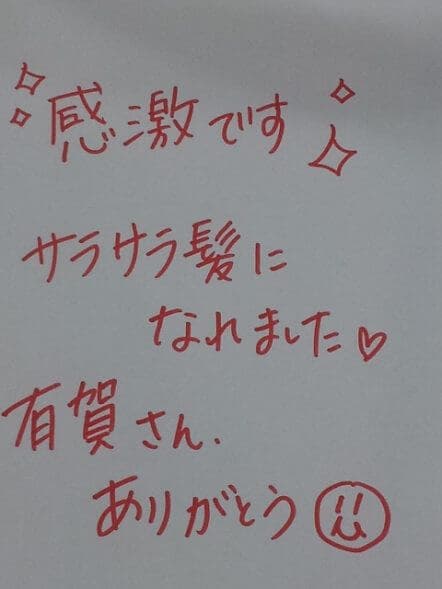 感激です
サラサラ髪に
なれました♡
有賀さん、
ありがとう